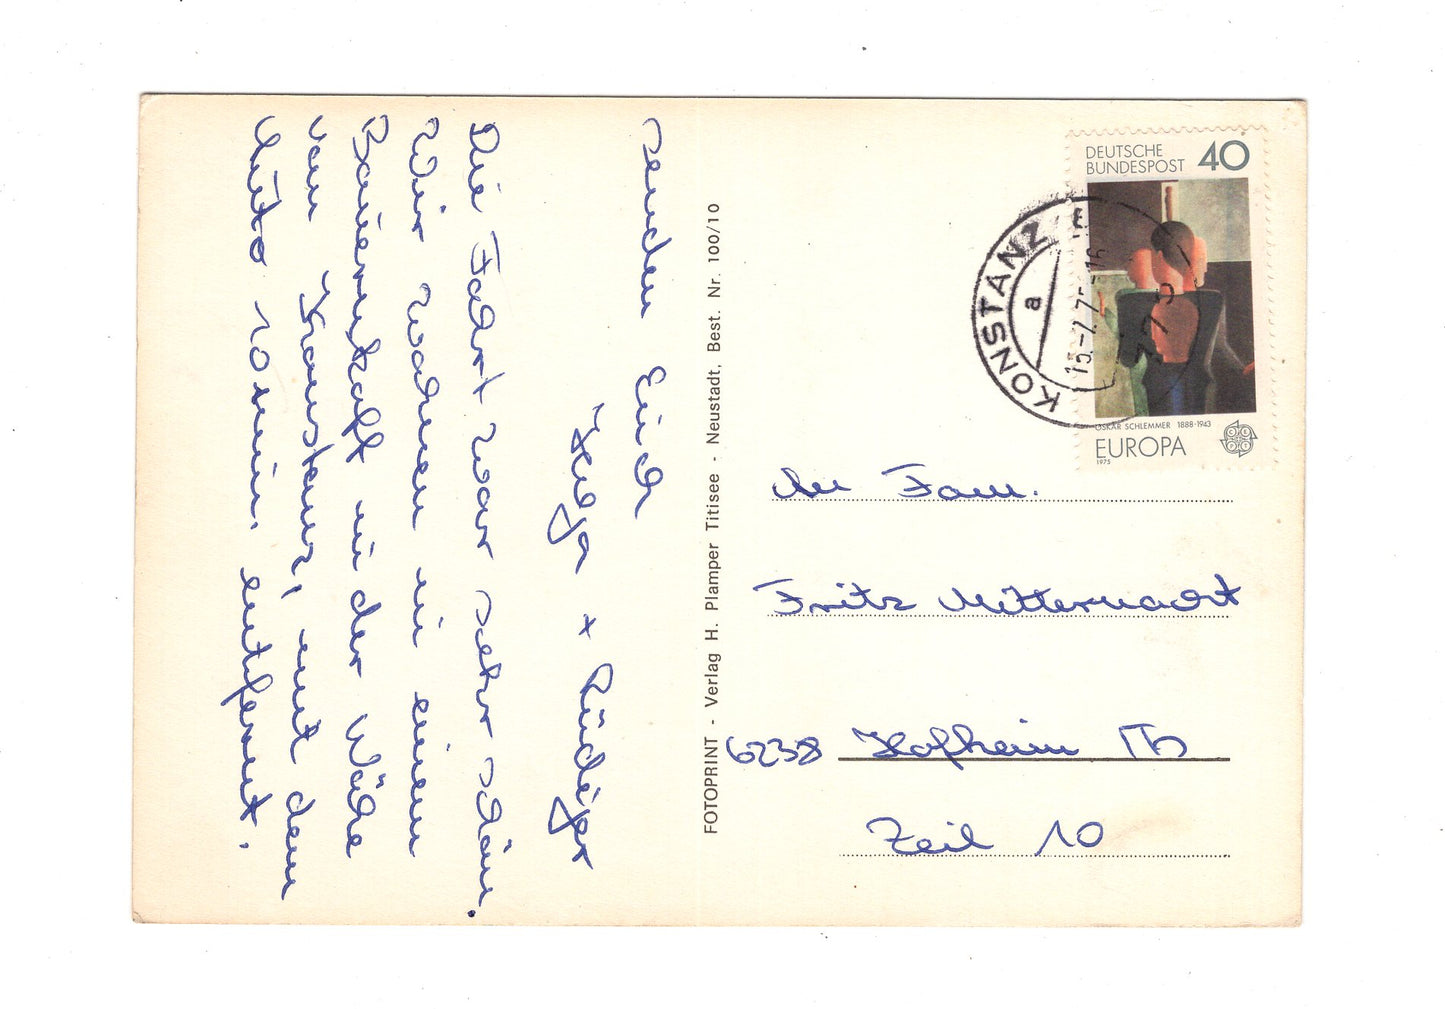 senden Euch
Helga + Rüdiger
Die Fahrt war sehr schön.
Wir wohnen in einem
Bauernkaff in der Nähe
von Konstanz, mit dem
Auto 10 min. entfernt.
FOTOPRINT - Verlag H. Plamper Titisee - Neustadt, Best. Nr. 100/10
DEUTSCHE
BUNDESPOST 40
OSKAR SCHLEMMER 1888-1943
EUROPA
1975
KONSTANZ
a
An Fam.
Fritz Mitternacht
6238 Hofheim Ts
Zeil 10